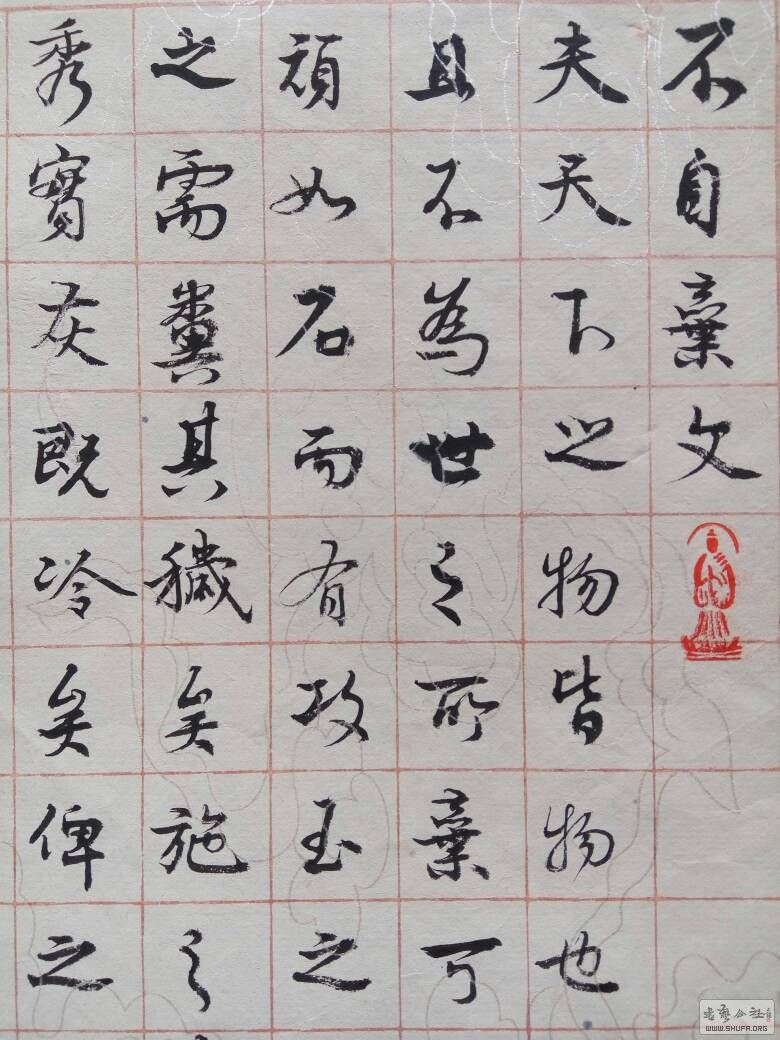 不自棄文
夫天下之物皆物也
且不為世之所棄可
頑如石而有攻玉之
之需糞其穢矣施之
秀實灰既冷矣俾之
WWW.SHUFA.ORG